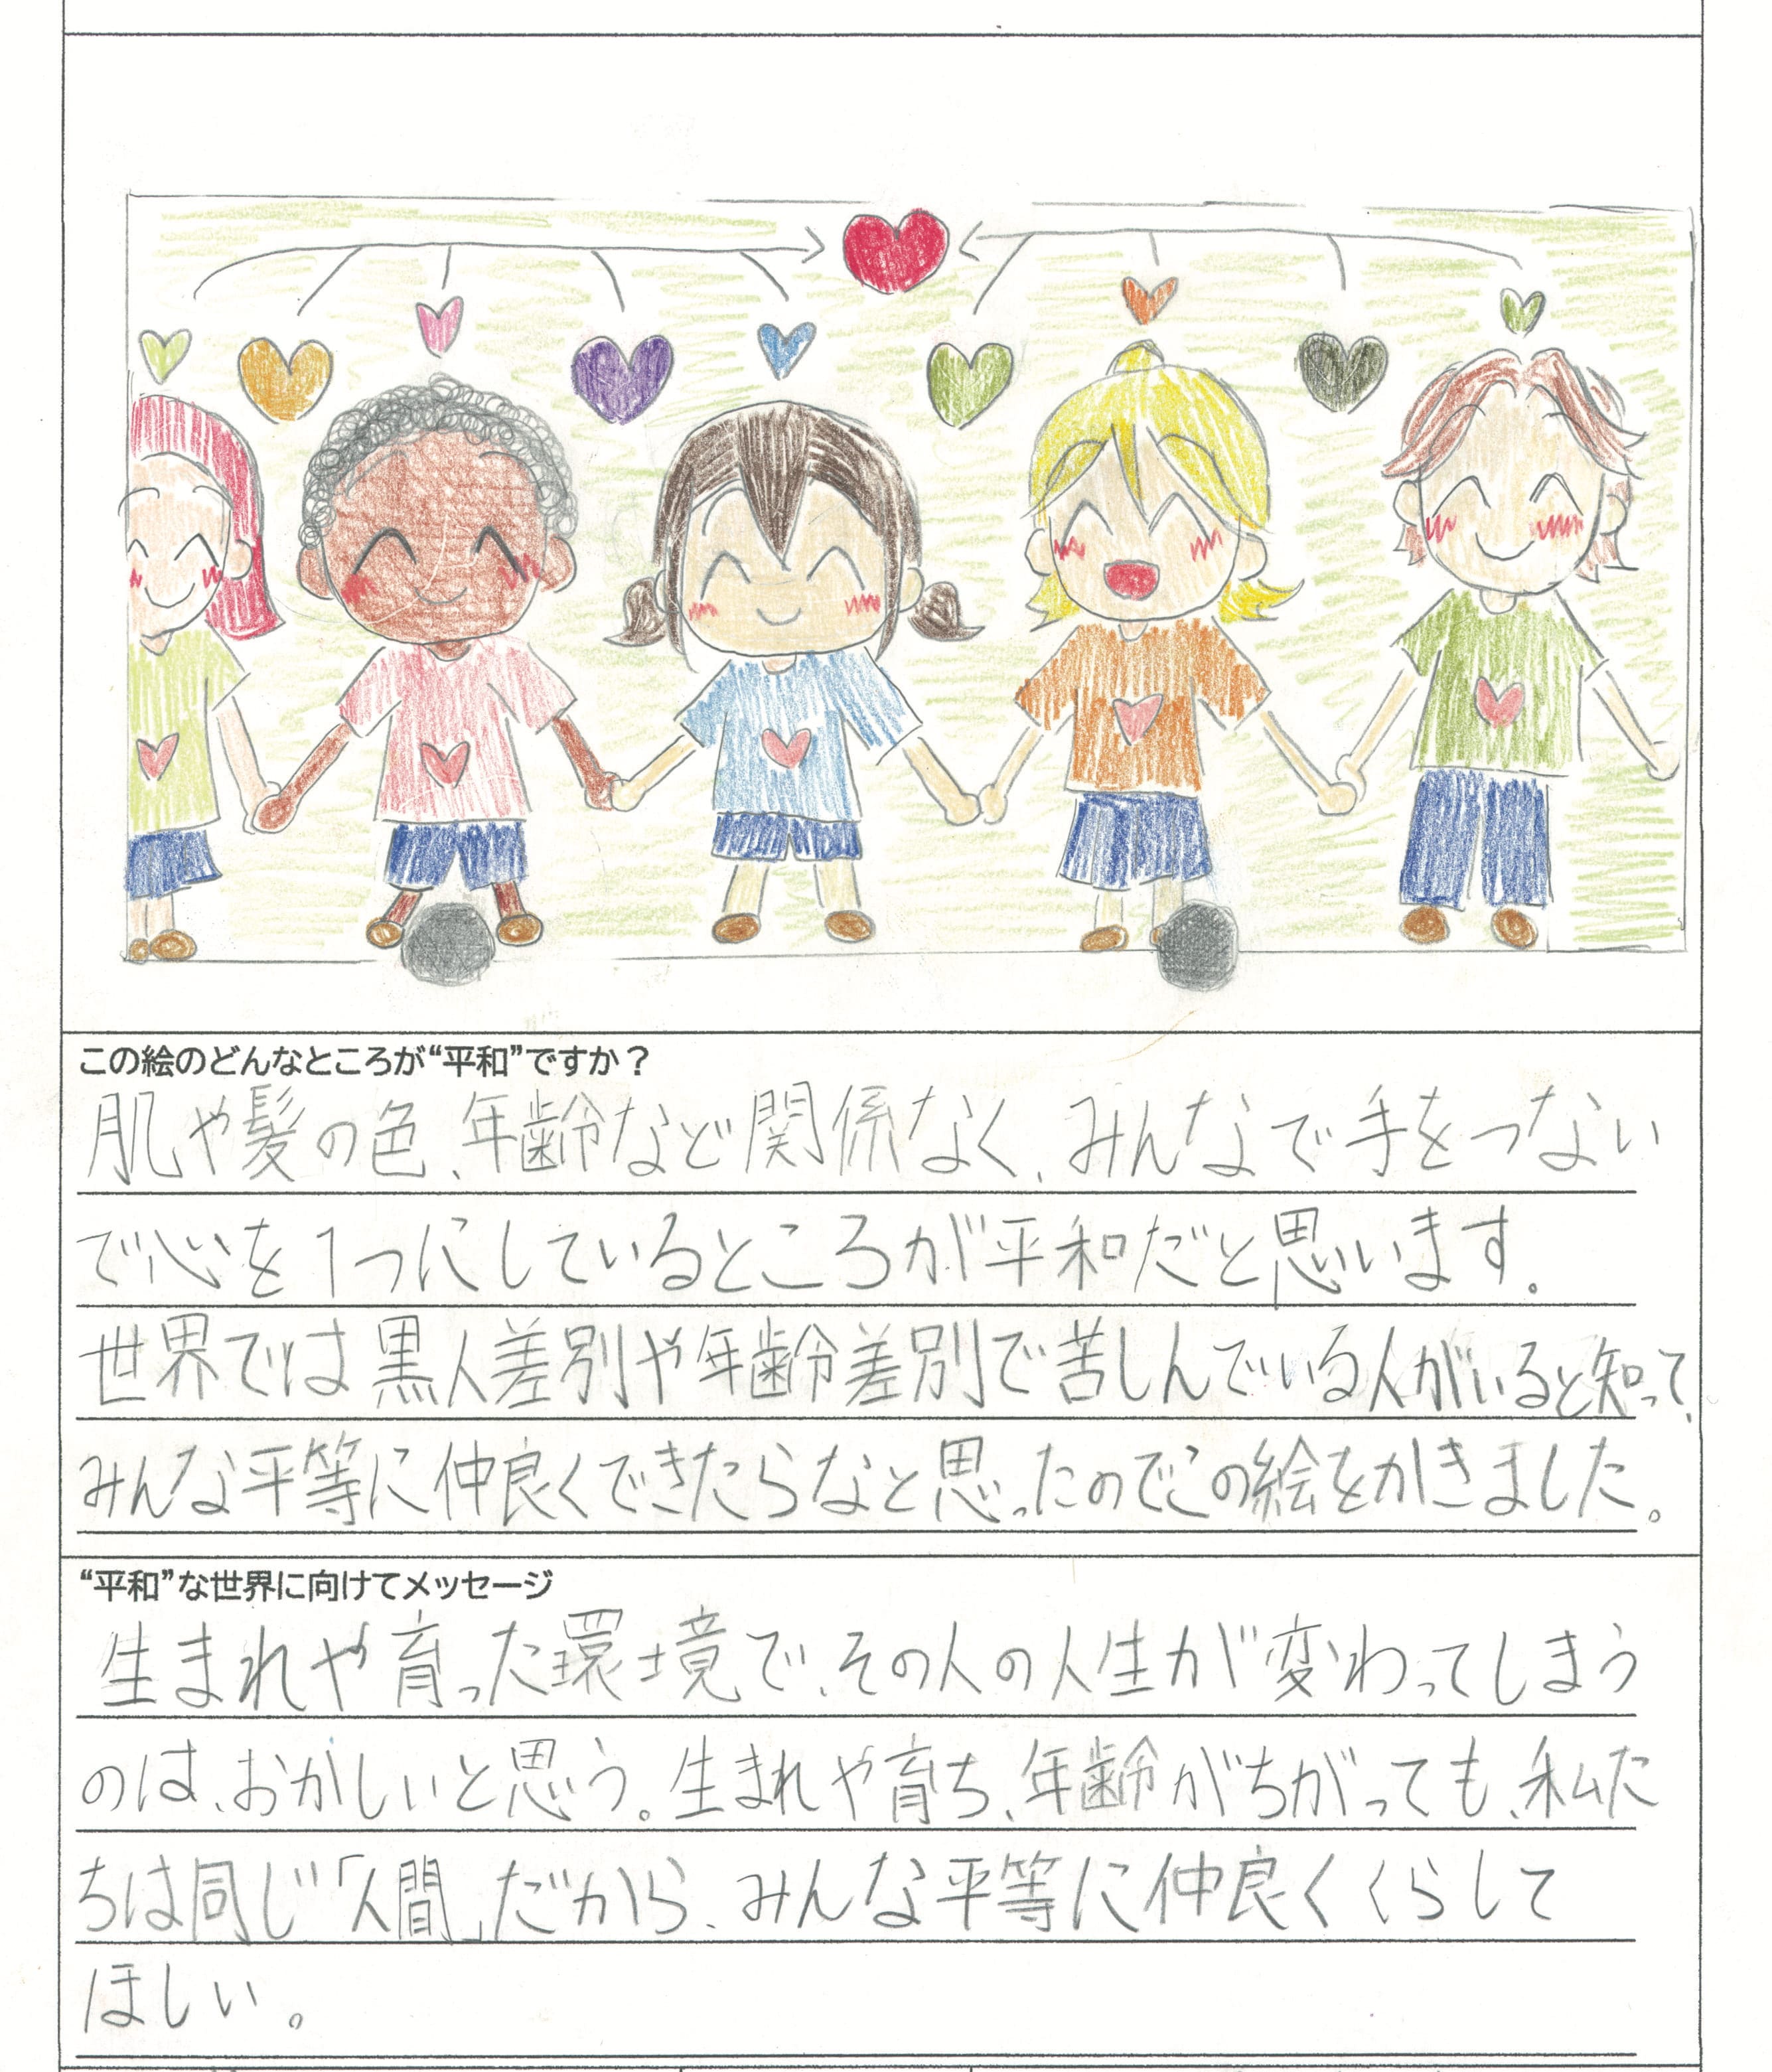 この絵のどんなところが“平和”ですか？
肌や髪の色、年齢など関係なく、みんなで手をつない
で心を1つにしているところが平和だと思います。
世界では黒人差別や年齢差別で苦しんでいる人がいると知って、
みんな平等に仲良くできたらなと思ったのでこの絵をかきました。
“平和”な世界に向けてメッセージ
生まれや育った環境で、その人の人生が変わってしまう
のは、おかしいと思う。生まれや育ち、年齢がちがっても、私た
ちは同じ「人間」だから、みんな平等に仲良くくらして
ほしい。